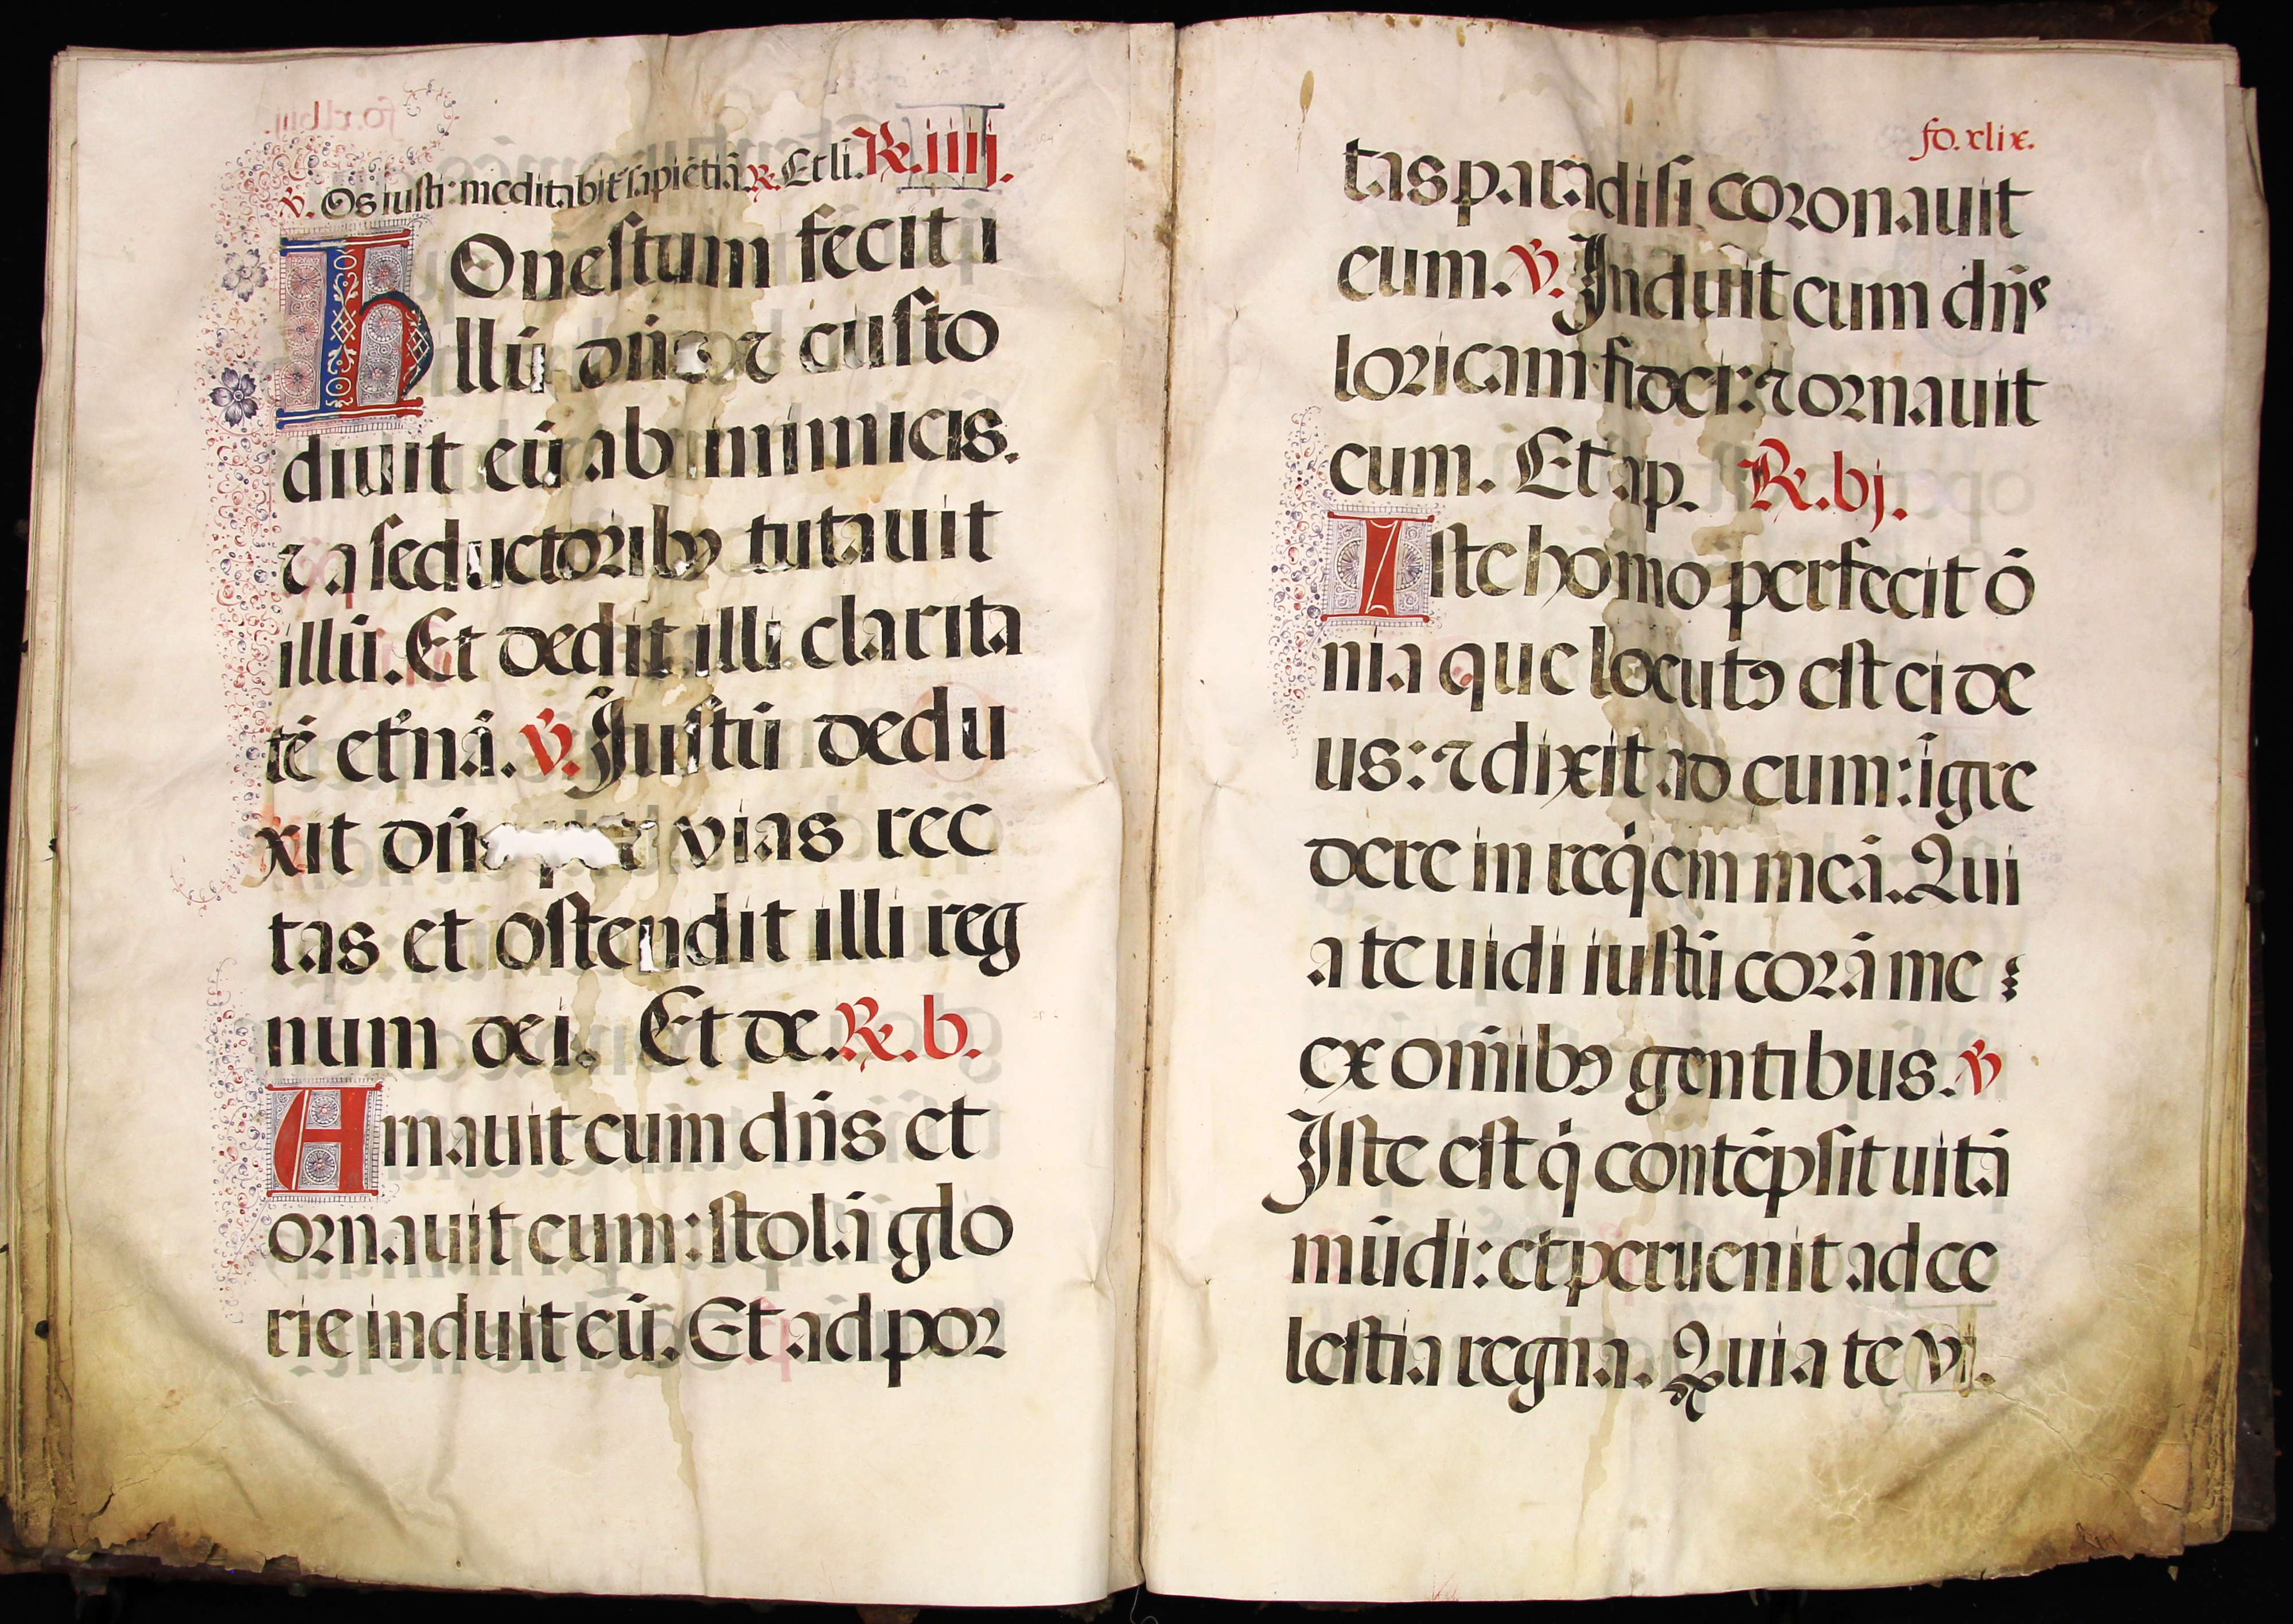 ℣. Os iusti: meditabit᷑ sapiētiā. ℟. Et li. ℟. iiij.
hOnestum fecit i
llū dn̄s ⁊ custo
diuit eū ab inimicis.
⁊ a seductoribꝰ tutauit
illū. Et dedit illi clarita
tē et᷑nā. ℣. Iustū dedu
xit dn̄s per vias rec
tas et ostendit illi reg
num dei. Et de. ℟. b.
Amauit eum dn̄s et
ornauit eum: stolā glo
rie induit eū. Et ad por
fo. xlix.
tas paradisi coronauit
eum. ℣. Induit eum dn̄s
loricam fidei: ⁊ ornauit
eum. Et ap. ℟. bj.
Iste homo perfecit ō
nia que locutꝰ est ei de
us: ⁊ dixit ad eum: īgre
dere in reqͥem meā. Qui
a te uidi iustū corā me
ex om̄ibꝰ gentibus. ℣
Iste est qͥ contēpsit uitā
mūdi: et peruenit ad ce
lestia regna. Quia te vi.